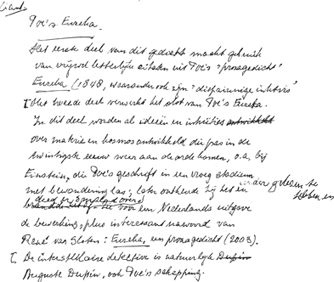 Poe's Eureka.
Het eerste deel van dit gedicht maakt gebruik
van vrijwel letterlijke citaten uit Poe's "prosagedicht"
Eureka (1848, waaronder ook zijn "
[ Het tweede deel verwerkt het slot van Poe's Eureka.
In dit deel worden al ideeën en intuïties
over materie en kosmos ontwikkeld die pas in de
twintigste eeuw weer aan de orde komen, o.a. bij
Einstein, die Poe's geschrift in een vroeg stadium
met bewondering las; later ontkende hij het
in der gelezen te
hebben en
voor een Nederlandse uitgave
de bewerking, plus interessant nawoord van
René van Slooten: Eureka, een prosagedicht (2003).
[ De intellectuele detective is natuurlijk Dupin
Auguste Dupin, ook Poe's schepping.